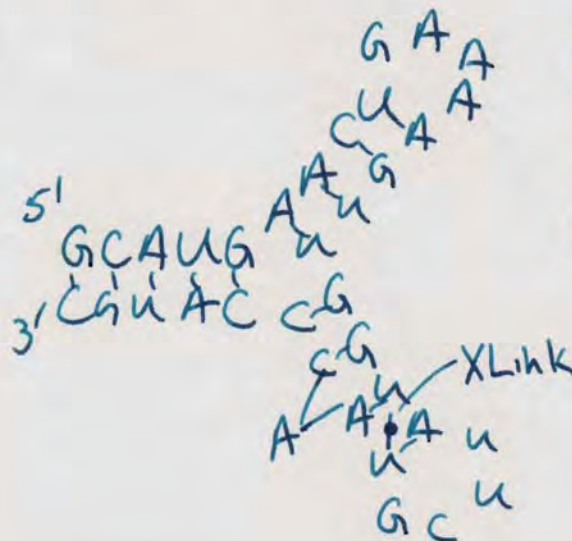 G A A
U A
C A
A G
5' A U
GCAUG U
3' CGUAC C G
C G
U XLink
A A A U
U U
G C